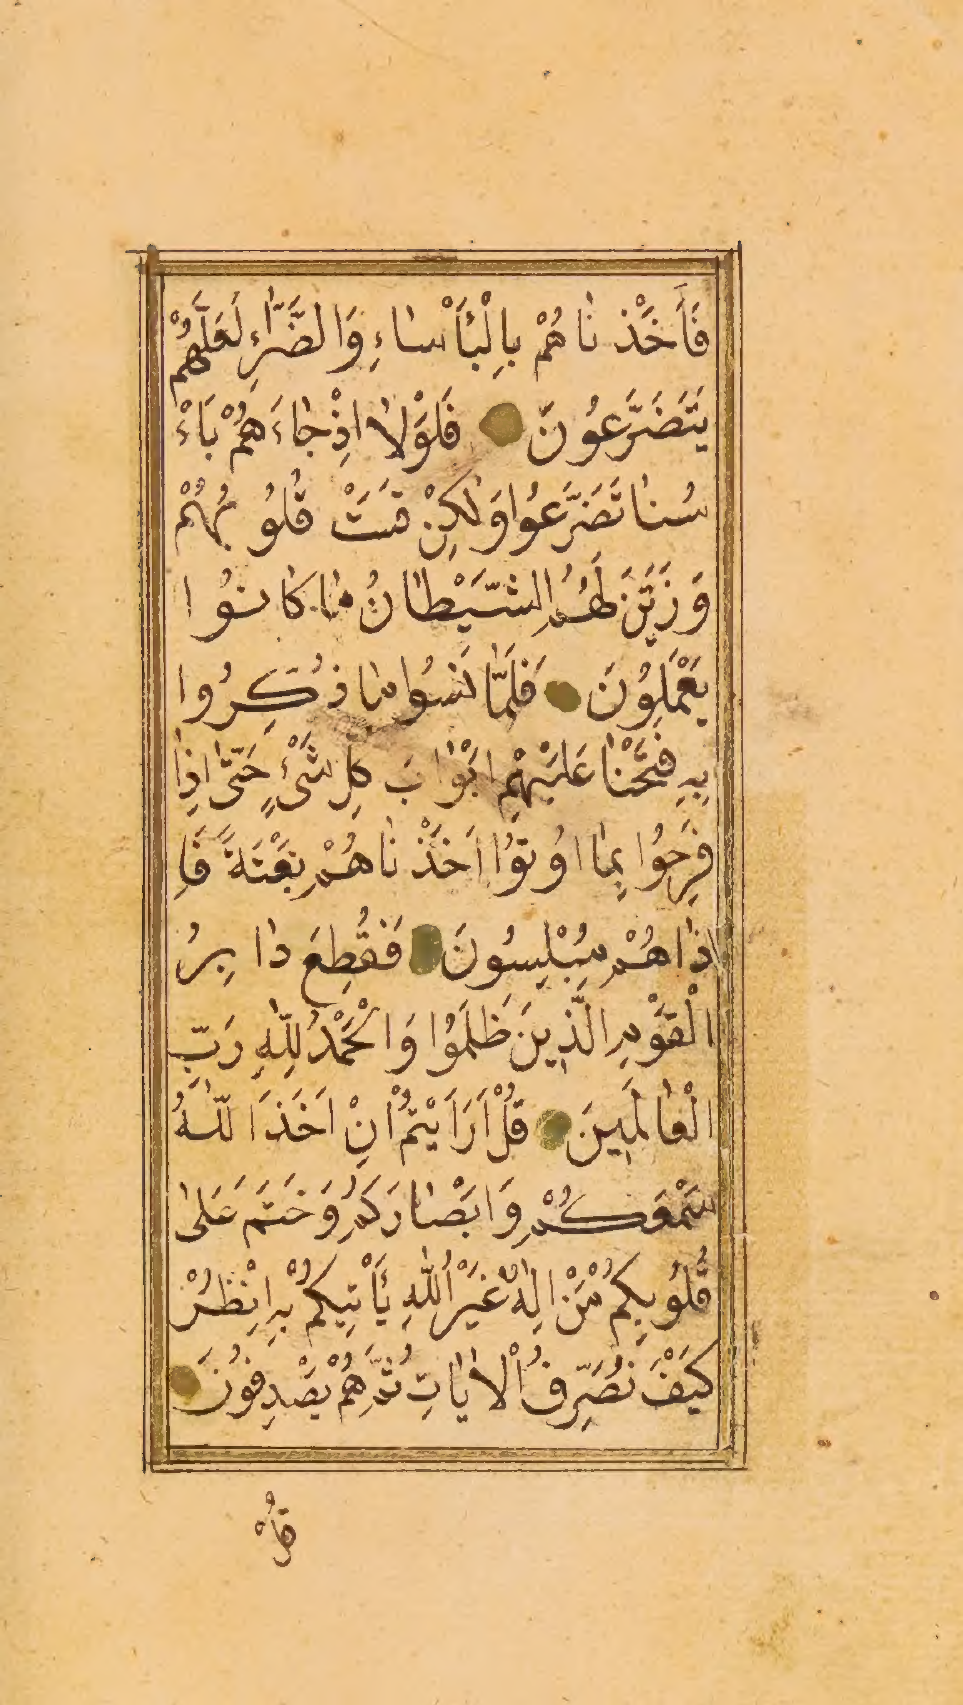 فَأَخَذْنَاهُمْ بِالْبَأْسَاءِ وَالضَّرَّاءِ لَعَلَّهُمْ
يَتَضَرَّعُونَ فَلَوْلَا اِذْ جَاءَهُمْ بَاْءْ
سُنَا تَضَرَّعُوا وَلٰكِنْ قَسَتْ قُلُوبُهُمْ
وَزَيَّنَ لَهُمُ الشَّيْطَانُ مَا كَانُوا
يَعْمَلُونَ فَلَمَّا نَسُوا مَا ذُكِّرُوا
بِهِ فَتَحْنَا عَلَيْهِمْ اَبْوَابَ كِلِّ شَيْءٍ حَتّٰى اِذَا
فَرِحُوا بِمَا اُوتُوا اَخَذْنَاهُمْ بَغْتَةً فَاِ
ذَا هُمْ مُبْلِسُونَ فَقُطِعَ دَابِرُ
الْقَوْمِ الَّذِينَ ظَلَمُوا وَالْحَمْدُ لِلّٰهِ رَبِّ
الْعَالَمِينَ قُلْ اَرَاَيْتُمْ اِنْ اَخَذَ اللّٰهُ
سَمْعَكُمْ وَاَبْصَارَكُمْ وَخَتَمَ عَلٰى
قُلُوبِكُمْ مَنْ اِلٰهٌ غَيْرُ اللّٰهِ يَأْتِيكُمْ بِهِ اُنْظُرْ
كَيْفَ نُصَرِّفُ الْاٰيَاتِ ثُمَّ هُمْ يَصْدِفُونَ
قُلْ